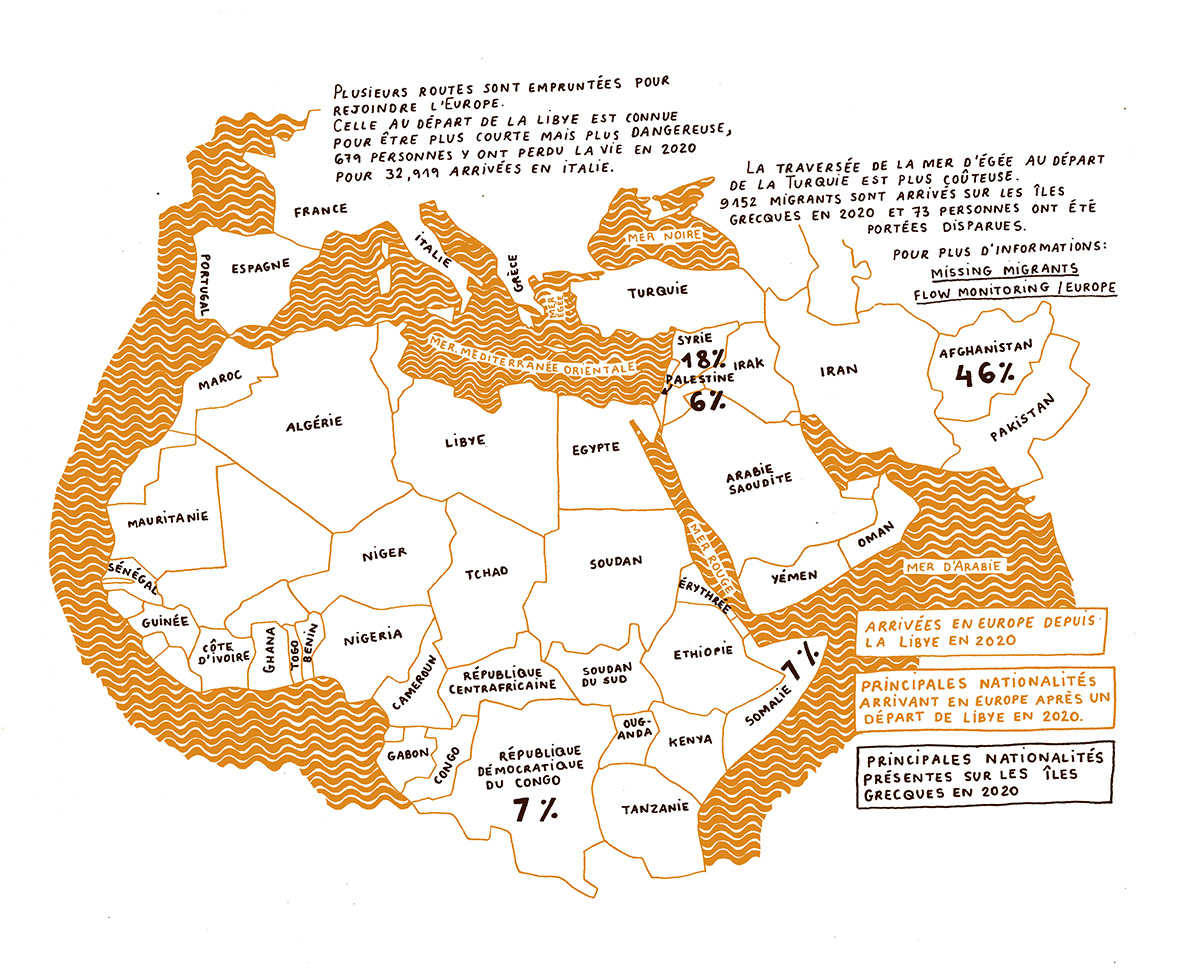 PLUSIEURS ROUTES SONT EMPRUNTÉES POUR
REJOINDRE L'EUROPE.
CELLE AU DÉPART DE LA LIBYE EST CONNUE
POUR ÊTRE PLUS COURTE MAIS PLUS DANGEREUSE,
679 PERSONNES Y ONT PERDU LA VIE EN 2020
POUR 32,919 ARRIVÉES EN ITALIE.
LA TRAVERSÉE DE LA MER D'ÉGÉE AU DÉPART
DE LA TURQUIE EST PLUS COÛTEUSE.
9152 MIGRANTS SONT ARRIVÉS SUR LES ÎLES
GRECQUES EN 2020 ET 73 PERSONNES ONT ÉTÉ
PORTÉES DISPARUES.
POUR PLUS D'INFORMATIONS:
MISSING MIGRANTS
FLOW MONITORING / EUROPE
FRANCE
ITALIE
GRÈCE
MER NOIRE
PORTUGAL
ESPAGNE
MER
ÉGÉE
TURQUIE
MER MÉDITERRANÉE ORIENTALE
SYRIE
18%
PALESTINE
6%
IRAK
IRAN
AFGHANISTAN
46%
PAKISTAN
MAROC
ALGÉRIE
LIBYE
EGYPTE
ARABIE
SAOUDITE
MAURITANIE
NIGER
TCHAD
SOUDAN
MER ROUGE
OMAN
YÉMEN
MER D'ARABIE
SÉNÉGAL
ÉRYTHRÉE
GUINÉE
CÔTE
D'IVOIRE
GHANA
TOGO
BENIN
NIGERIA
CAMEROUN
RÉPUBLIQUE
CENTRAFRICAINE
SOUDAN
DU SUD
ETHIOPIE
SOMALIE 7%
GABON
CONGO
RÉPUBLIQUE
DÉMOCRATIQUE
DU CONGO
7%
OUG-
ANDA
KENYA
TANZANIE
ARRIVÉES EN EUROPE DEPUIS
LA LIBYE EN 2020
PRINCIPALES NATIONALITÉS
ARRIVANT EN EUROPE APRÈS UN
DÉPART DE LIBYE EN 2020.
PRINCIPALES NATIONALITÉS
PRÉSENTES SUR LES ÎLES
GRECQUES EN 2020